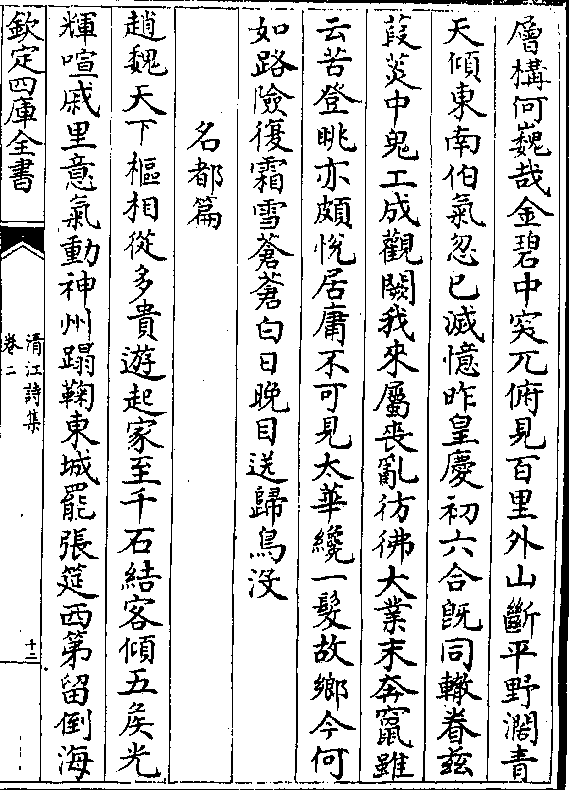 層構何巍哉金碧中突兀俯見百里外山斷平野濶青
天傾東南伯氣忽已滅憶昨皇慶初六合既同轍眷兹
葭菼中鬼工成觀闕我來屬喪亂彷彿大業末奔竄雖
云苦登眺亦頗悅居庸不可見大華纔一髮故鄉今何
如路險復霜雪蒼蒼白日晚目送歸鳥没
名都篇
趙魏天下樞相從多貴遊起家至千石結客傾五矦光
輝喧戚里意氣動神州蹋鞠東城罷張筵西第留倒海
欽定四庫全書
清江詩集
卷二
十二